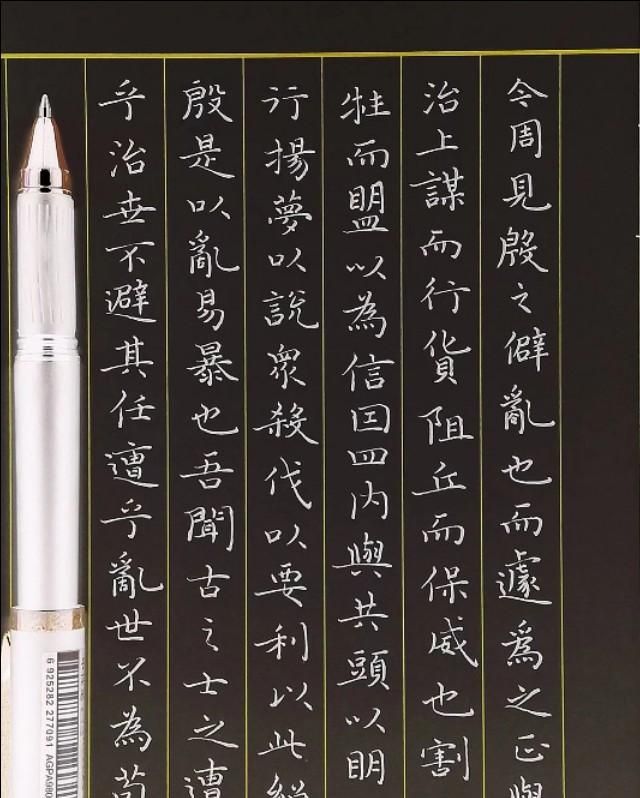 今周見殷之僻亂也而遽爲之正與
治上謀而行貨阻丘而保威也割
牲而盟以為信囙四内與共頭以明
行揚夢以說衆殺伐以要利以此紹
殷是以亂易暴也吾聞古之士之遭
乎治世不避其任遭乎亂世不為苟
6 925282 277091